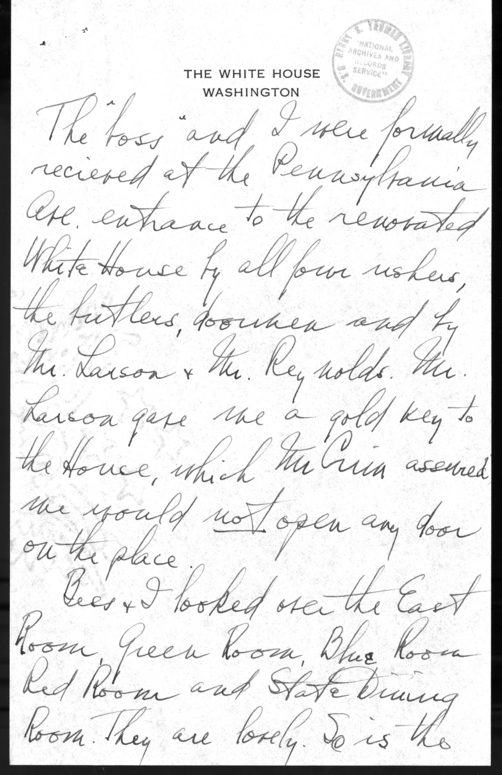 HARRY S. TRUMAN LIBRARY
"NATIONAL
ARCHIVES AND
RECORDS
SERVICE"
U.S. GOVERNMENT
THE WHITE HOUSE
WASHINGTON
The "boss" and I were formally
recieved at the Pennsylvania
Ave. entrance to the renovated
White House by all four ushers,
the butlers, doormen and by
Mr. Larson & Mr. Reynolds. Mr.
Larson gave me a gold key to
the House, which Mr Crim assured
me would not open any door
on the place.
Bess & I looked over the East
Room, Green Room, Blue Room
Red Room and State Dining
Room. They are lovely. So is the